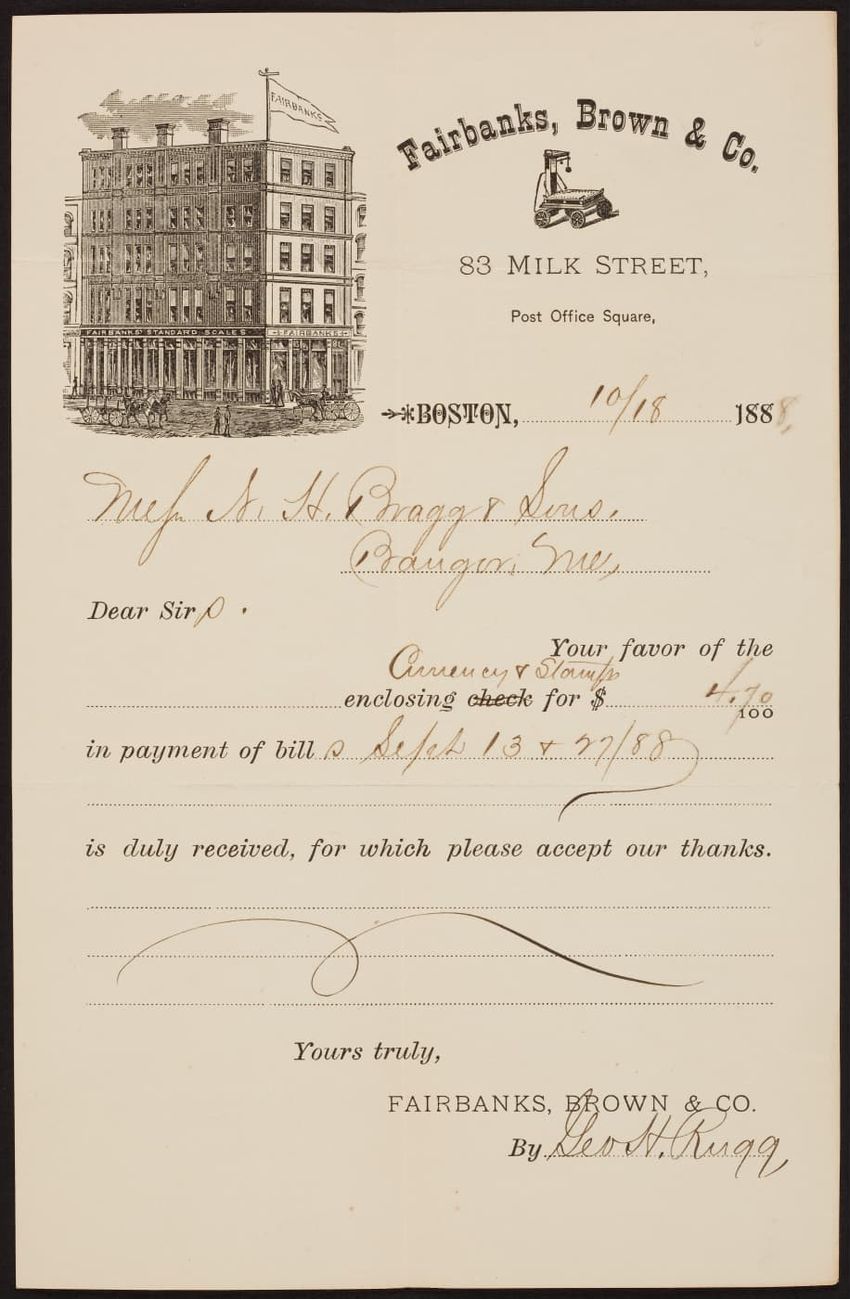 FAIRBANKS
Fairbanks, Brown & Co.
83 MILK STREET,
Post Office Square,
FAIRBANKS' STANDARD SCALES
FAIRBANKS
BOSTON, 10/18 1888,
Mess N. H. Bragg & Sons.
Bangor, Me,
Dear Sirs.
Your favor of the
Currency & Stamps
enclosing check for $ 4.70
100
in payment of bill s Sept 13 & 27/88
is duly received, for which please accept our thanks.
Yours truly,
FAIRBANKS, BROWN & CO.
By Geo H. Rugg